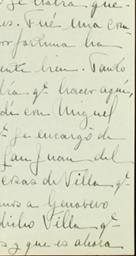 se habia que
es. Fué una con
or fortuna ha
ente bien. Tanto
ha q.e hacer aquí,
di con Miguel
q.e se encargó de
San Juan del
cosas de Villa q.e
mos a Genovevo
dicho Villa q.e
s y que es ahora